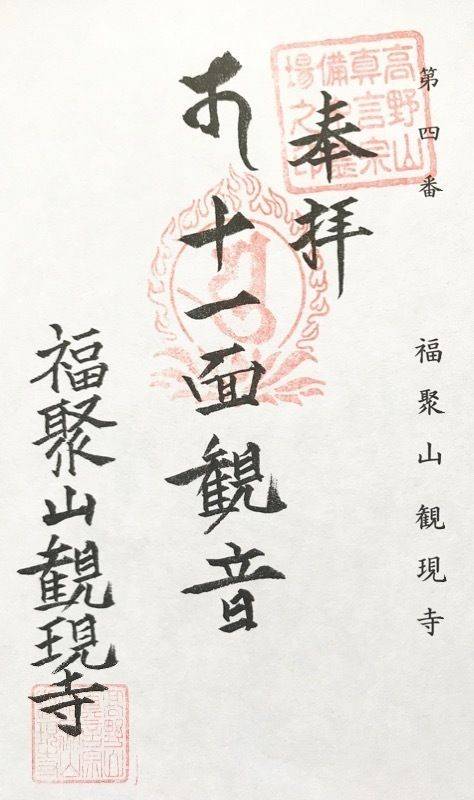 第四番 福聚山観現寺
高野山
真言宗
備
場之印
奉拝
十一面観音
福聚山観現寺